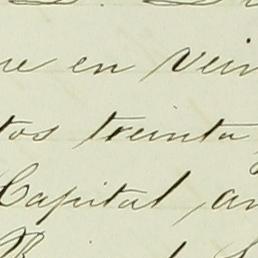 ue en vein
tos treinta y
Capital, an